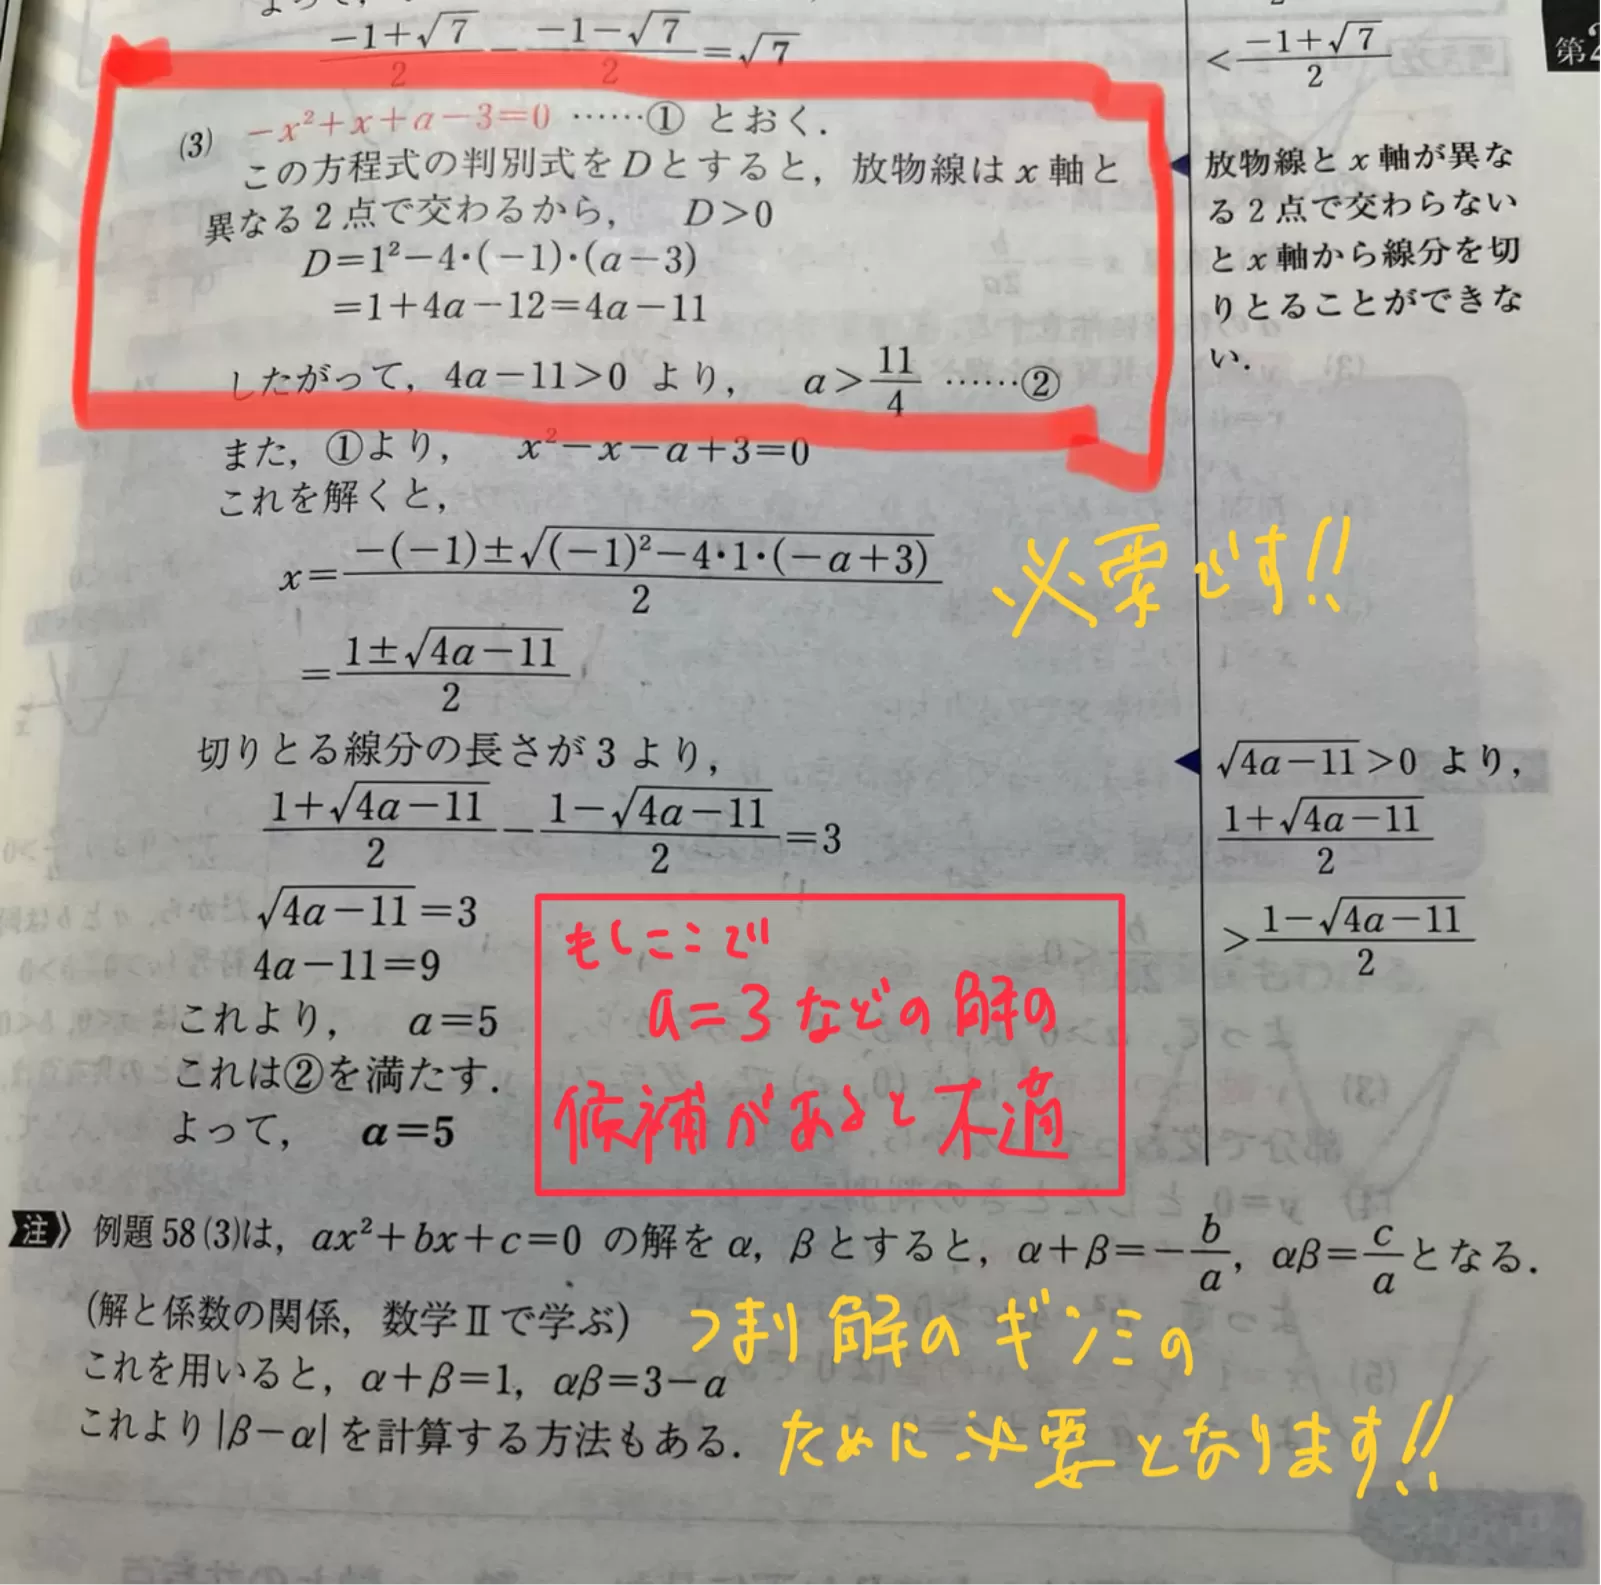 よって，
(-1+√7)/2 - (-1-√7)/2 = √7
< (-1+√7)/2
第2
(3) -x²+x+a-3=0 ……① とおく．
この方程式の判別式をDとすると，放物線はx軸と
異なる2点で交わるから， D>0
D=1²-4・(-1)・(a-3)
=1+4a-12=4a-11
したがって，4a-11>0 より， a>11/4 ……②
放物線とx軸が異な
る2点で交わらない
とx軸から線分を切
りとることができな
い．
また，①より， x²-x-a+3=0
これを解くと，
x=(-(-1)±√((-1)²-4・1・(-a+3)))/2
必要です!!
=(1±√(4a-11))/2
切りとる線分の長さが3より，
(1+√(4a-11))/2 - (1-√(4a-11))/2 = 3
√(4a-11)=3
4a-11=9
これより， a=5
これは②を満たす．
よって， a=5
√(4a-11)>0 より，
(1+√(4a-11))/2
> (1-√(4a-11))/2
もしここで
a=3などの解の
候補があると不適
注 例題58(3)は，ax²+bx+c=0 の解をα，βとすると，α+β=-b/a，αβ=c/aとなる．
(解と係数の関係，数学Ⅱで学ぶ)
これを用いると，α+β=1，αβ=3-a
これより|β-α|を計算する方法もある．
つまり解のギンミの
ために必要となります!!